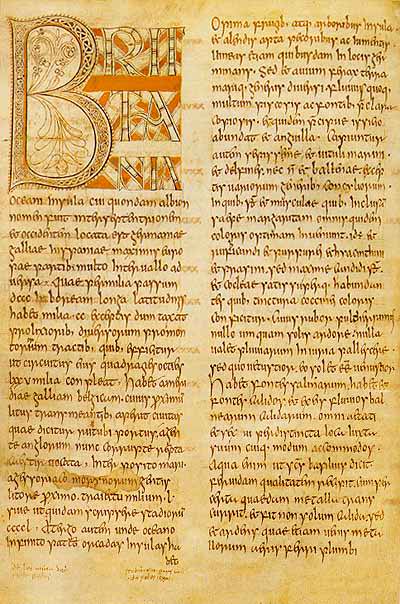 BRIT
TA
NIA
oceani insula cui quondam albion
nomen fuit inter septentrionem
et occidentem locata est germaniae
galliae hispaniae maximis euro
pae partibus multo interuallo ad
uersa. Quae per milia passuum
dccc in boream longa latitudinis
habet milia .cc. exceptis dum taxat
prolixioribus diuersorum promon
toriorum tractibus quibus efficitur
ut circuitus eius quadragies octies
lxxv milia conpleat. Habet a meri
die galliam belgicam cuius proximum
litus transmeantibus aperit ciuitas
quae dicitur rutubi portus a gen
te anglorum nunc corrupte repta
caestir uocata. Interposito mari
a gessoriaco morynorum gentis
litore proximo. traiectu milium .l.
siue ut quidam scripsere stadiorum
ccccl. A tergo autem unde oceano
infinito patet orcadas insulas ha
bet
Opima frugib; atq; arboribus insula
et alendis apta pecoribus ac iumentis
uineas etiam quibusdam in locis ger
minans. Sed et auium ferax terra
mariq; generis diuersi fluuiis quoq;
multum piscosis ac fontib; praeclara
copiosis. et quidem praecipue issicio
abundat et anguilla. Capiuntur
autem saepissime et uituli marini
et delfines nec non et ballenae. exceptis
uariorum generibus concyliorum.
In quib; sunt et musculae quib; inclusam
saepe margaritam omnis quidem
coloris optimam inueniunt. id est et
rubicundi et purpurei et hyacinthini
et prasini. sed maxime candidi. sunt
et cocleae satis superq; habundan
tes quib; tinctura coccinei coloris
conficitur. Cuius rubor pulcherrimus
nullo umquam solis ardore. nulla
ualet pluuiarum iniuria pallescere
sed quo uetustior eo solet esse uenustior
Habet fontes salinarum. habet et
fontes calidos et ex eis fluuios bal
nearum calidarum. omni aetati
et sexui per distincta loca iuxta
suum cuiq; modum accommodos.
Aqua enim ut scs basilius dicit
feruidam qualitatem recipit cum per
certa quaedam metalla trans
currit. et fit non solum calida sed
et ardens quae etiam uenis metal
lorum aeris ferri plumbi